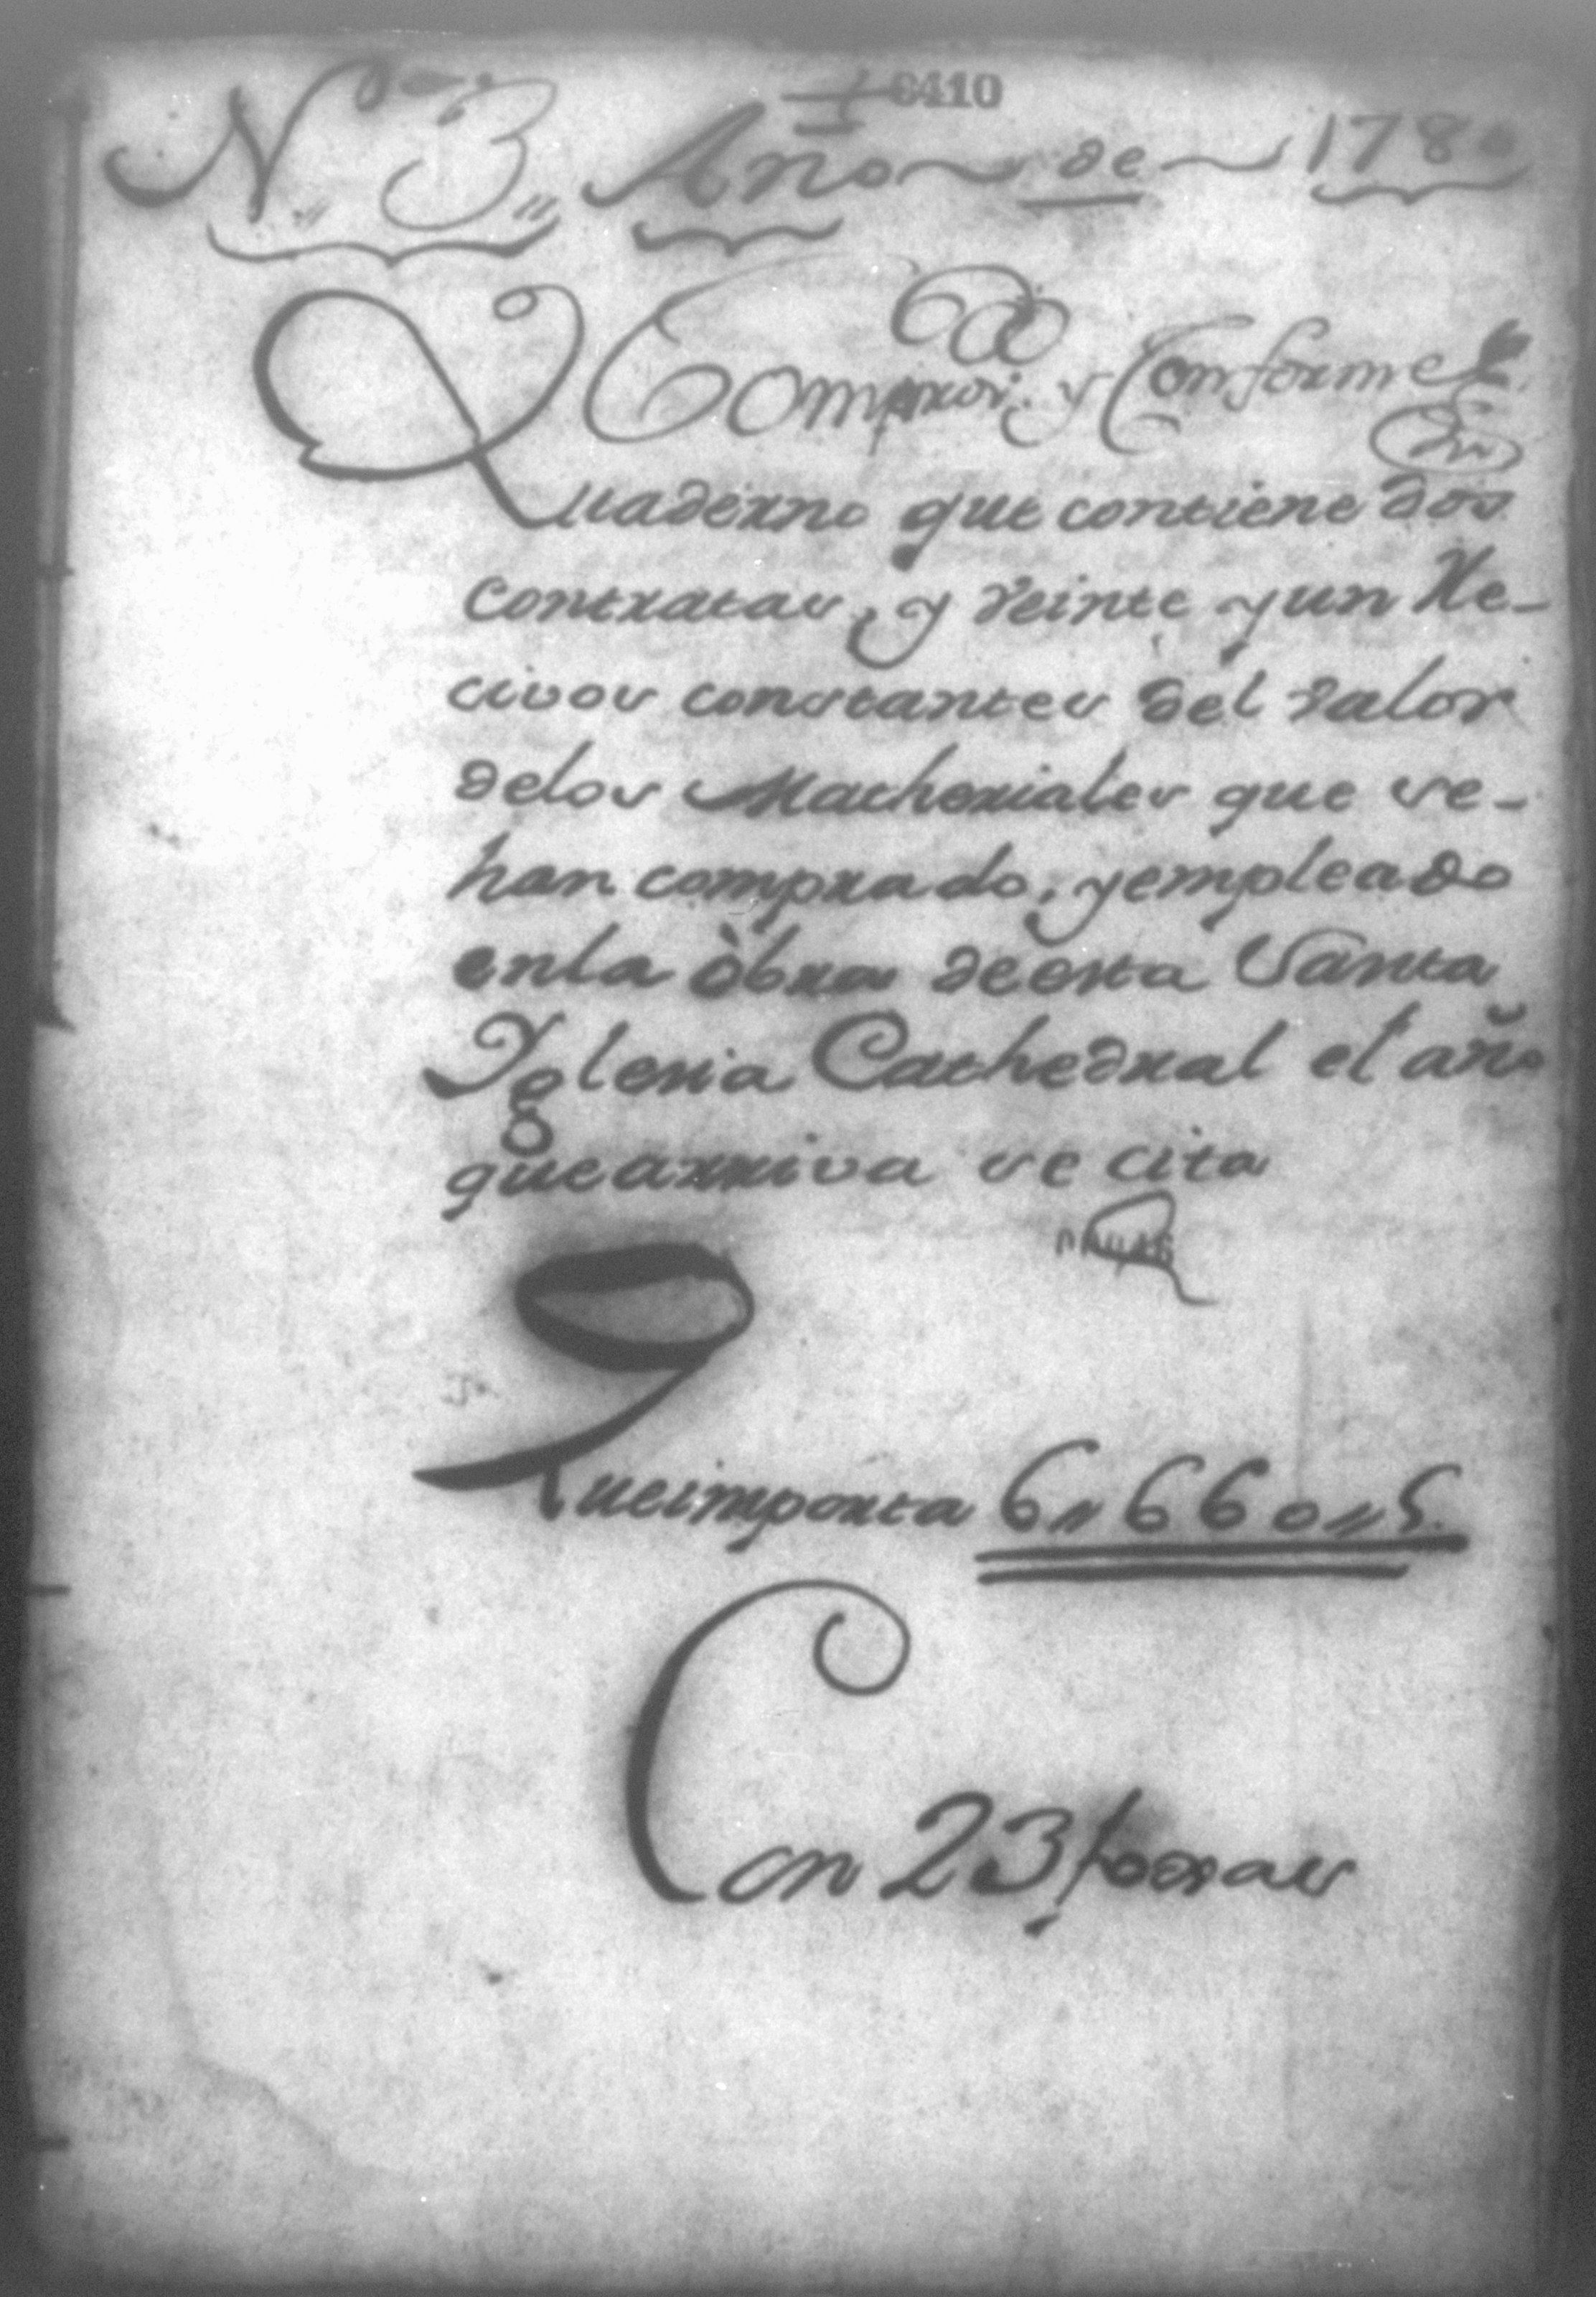 8410
N.,, 3,, Año de 1780
Comprov. y Conforme
Quaderno que contiene dos
contratas, y veinte y un Re-
civos constantes del valor
delos Matheriales que se-
han comprado, y empleado
enla òbra deesta Santa
Yglesia Cathedral el año
quearriva se cita
Queimporta 6,,660,,5.
Con 23 foxas